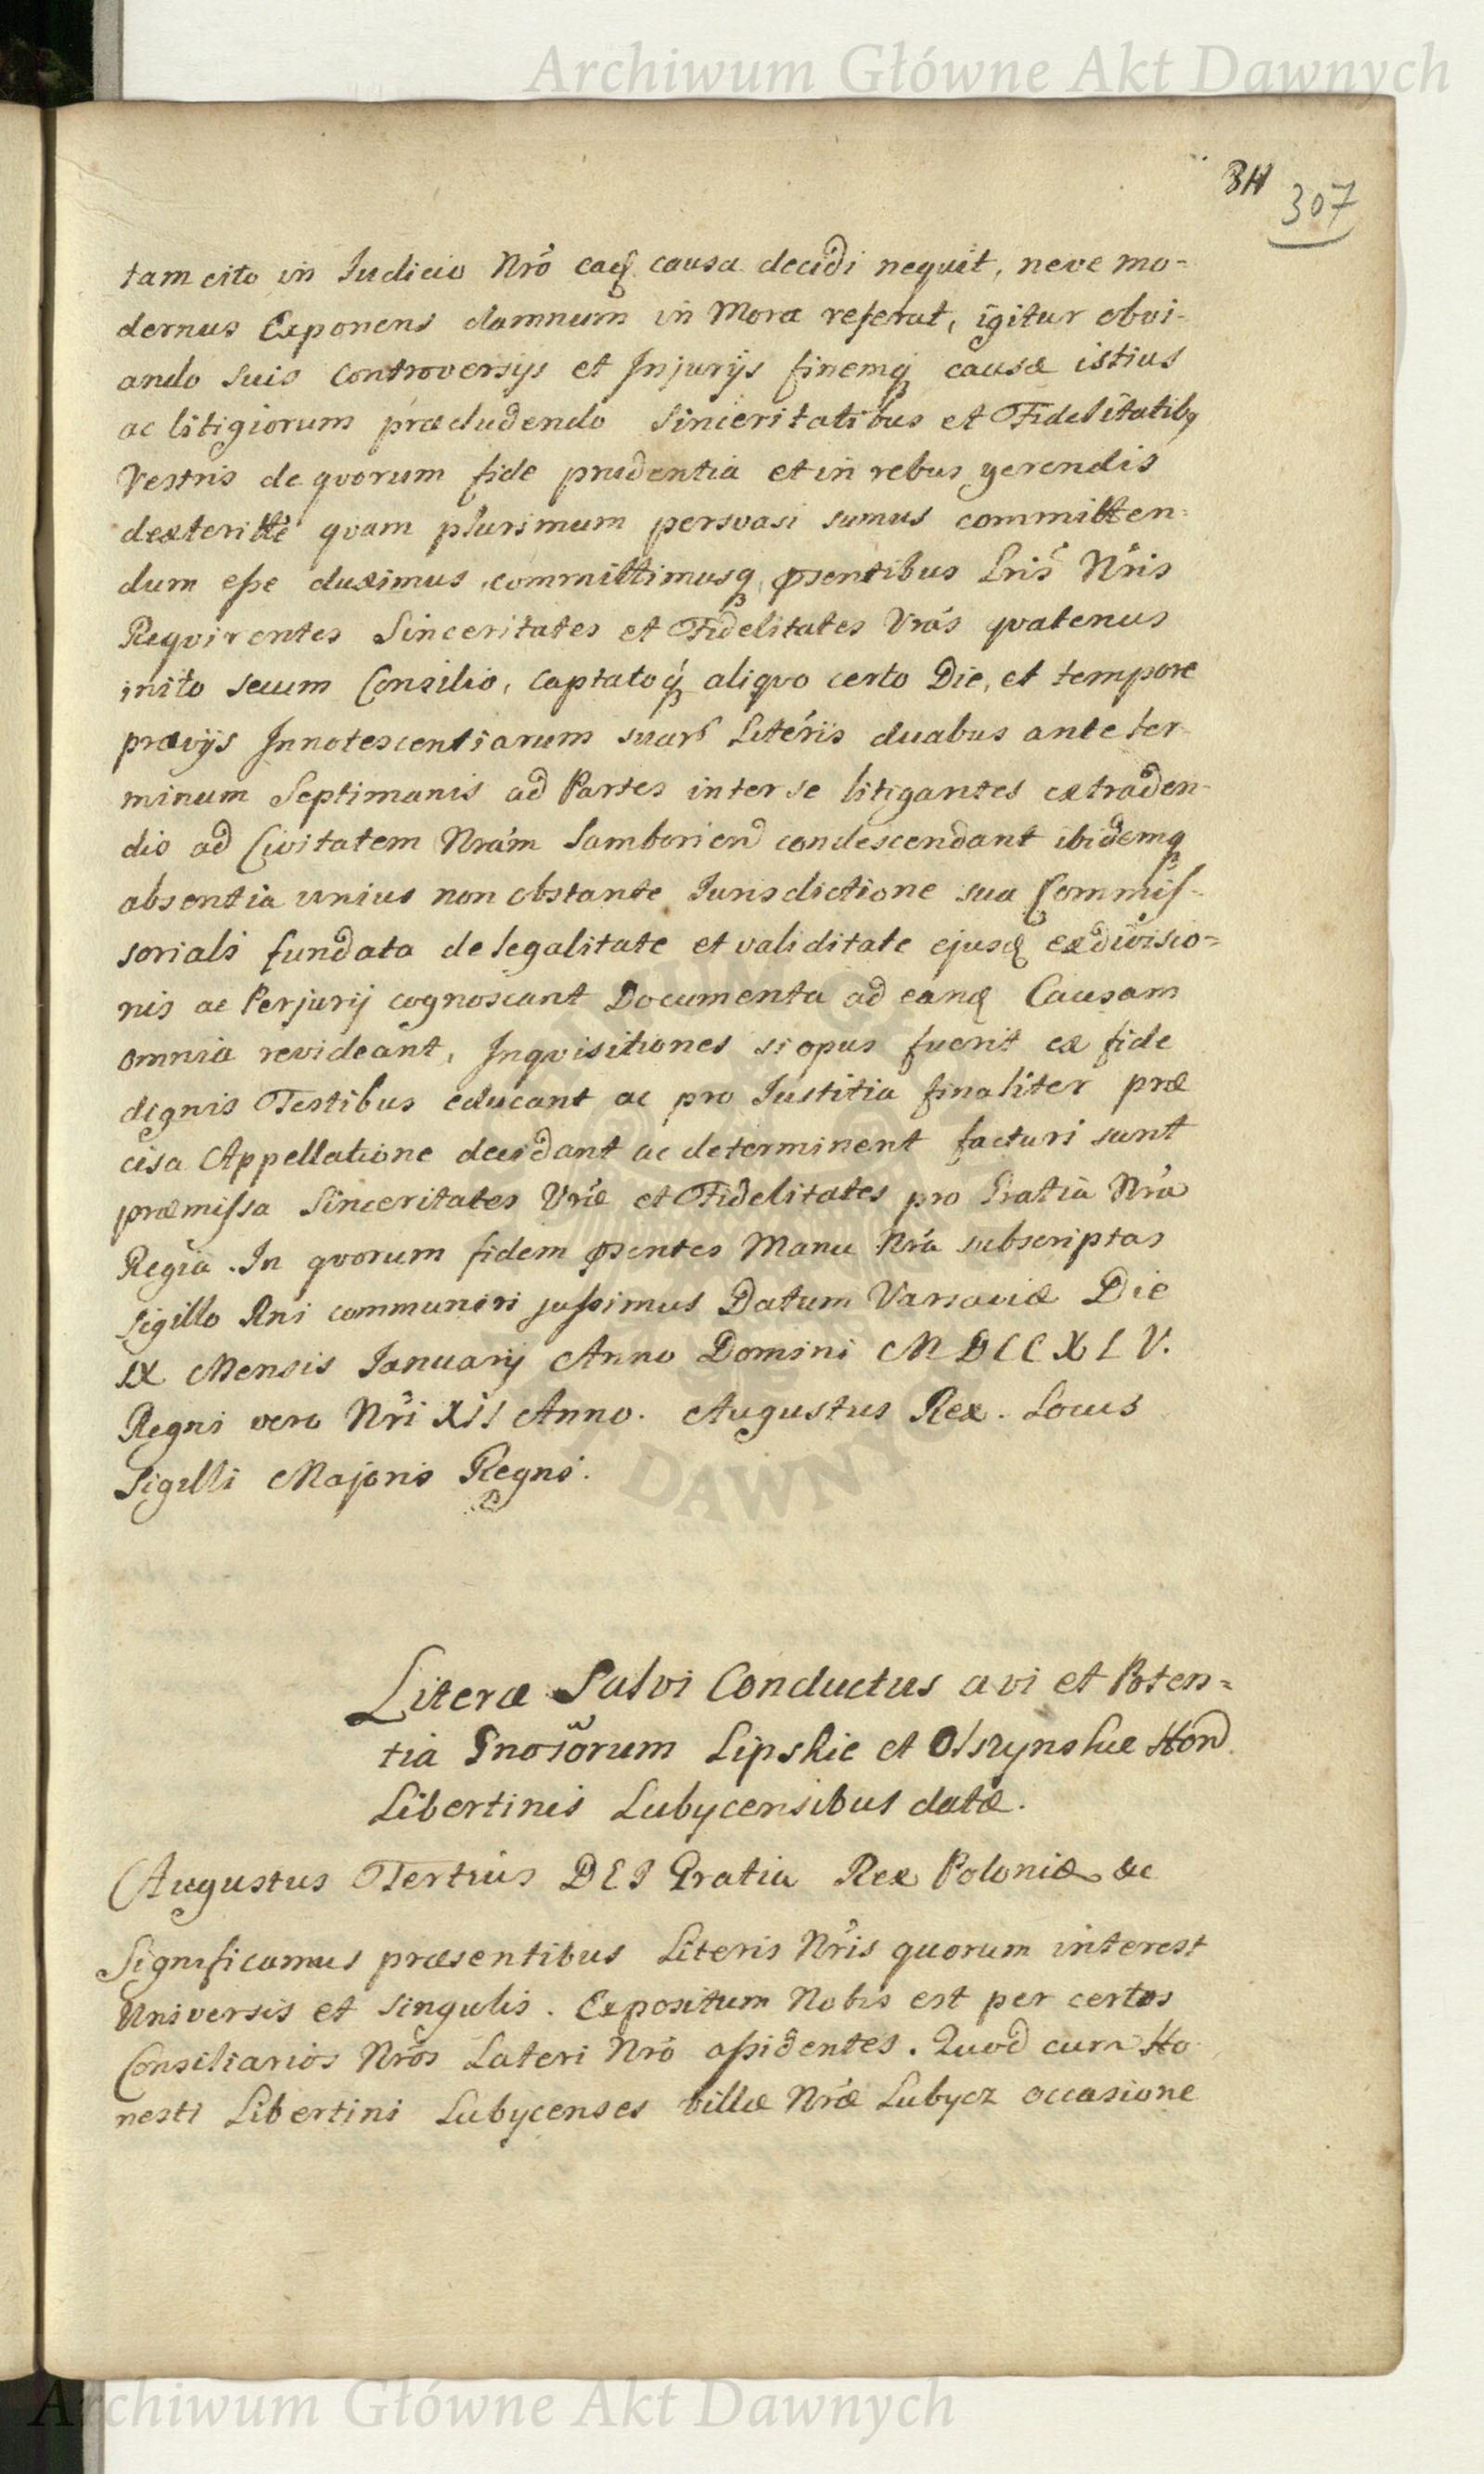 Archiwum Główne Akt Dawnych
307
tam cito in Iudicio Nrõ eaq causa decidi nequit, neve mo-
dernus Exponens damnum in Mora referat, igitur obvi-
ando suis controversijs et Injurijs finemq causæ istius
ac litigiorum præcludendo Sinceritatibus et Fidelitatibq
Vestris de qvorum fide prudentia et in rebus gerendis
dexteritte qvam plurimum persvasi sumus committen-
dum esse duximus, committimusq psentibus Lris Nris
Reqvirentes Sinceritates et Fidelitates Vras qvatenus
inito secum Consilio, captatoq aliqvo certo Die, et tempore
prævijs Innotescentiarum suar Literis duabus ante ter-
minum Septimanis ad Partes inter se litigantes extraden-
dis ad Civitatem Nram Samborien condescendant ibidemq
absentia unius non obstante Iurisdictione sua Commis-
soriali fundata de legalitate et validitate ejusd exdivisio=
nis ac Perjurij cognoscant Documenta ad eand Causam
omnia revideant, Inqvisitiones si opus fuerit ex fide
dignis Testibus educant ac pro Iustitia finaliter præ
cisa Appellatione decidant ac determinent facturi sunt
præmissa Sinceritates Vræ et Fidelitates pro Gratia Nra
Regia. In qvorum fidem psentes Manu Nra subscriptas
Sigillo Rni communiri jussimus Datum Varsaviæ Die
IX Mensis Ianuarij Anno Domini MDCCXLV.
Regni vero Nri XII Anno. Augustus Rex. Locus
Sigilli Majoris Regni.
Literæ Salvi Conductus a vi et Poten=
tia Gnosorum Lipskie et Olszynskie Hon
Libertinis Lubycensibus datæ.
Augustus Tertius DEI Gratia Rex Poloniæ &c
Significamus præsentibus Literis Nris quorum interest
Universis et singulis. Expositum Nobis est per certos
Consiliarios Nros Lateri Nro assidentes. Quod cum Ho
nesti Libertini Lubycenses villæ Nræ Lubycz occasione
Archiwum Główne Akt Dawnych